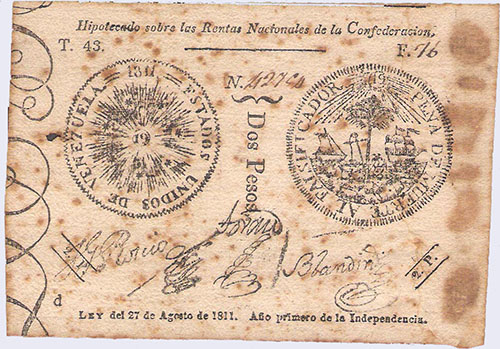 Hipotecado sobre las Rentas Nacionales de la Confederacion.
T. 43.
F. 76
1811
ESTADOS UNIDOS DE VENEZUELA
19
N.
Dos Pesos
19
PENA DE MUERTE AL FALSIFICADOR
Blandin
2 P.
d
LEY del 27 de Agosto de 1811. Año primero de la Independencia.